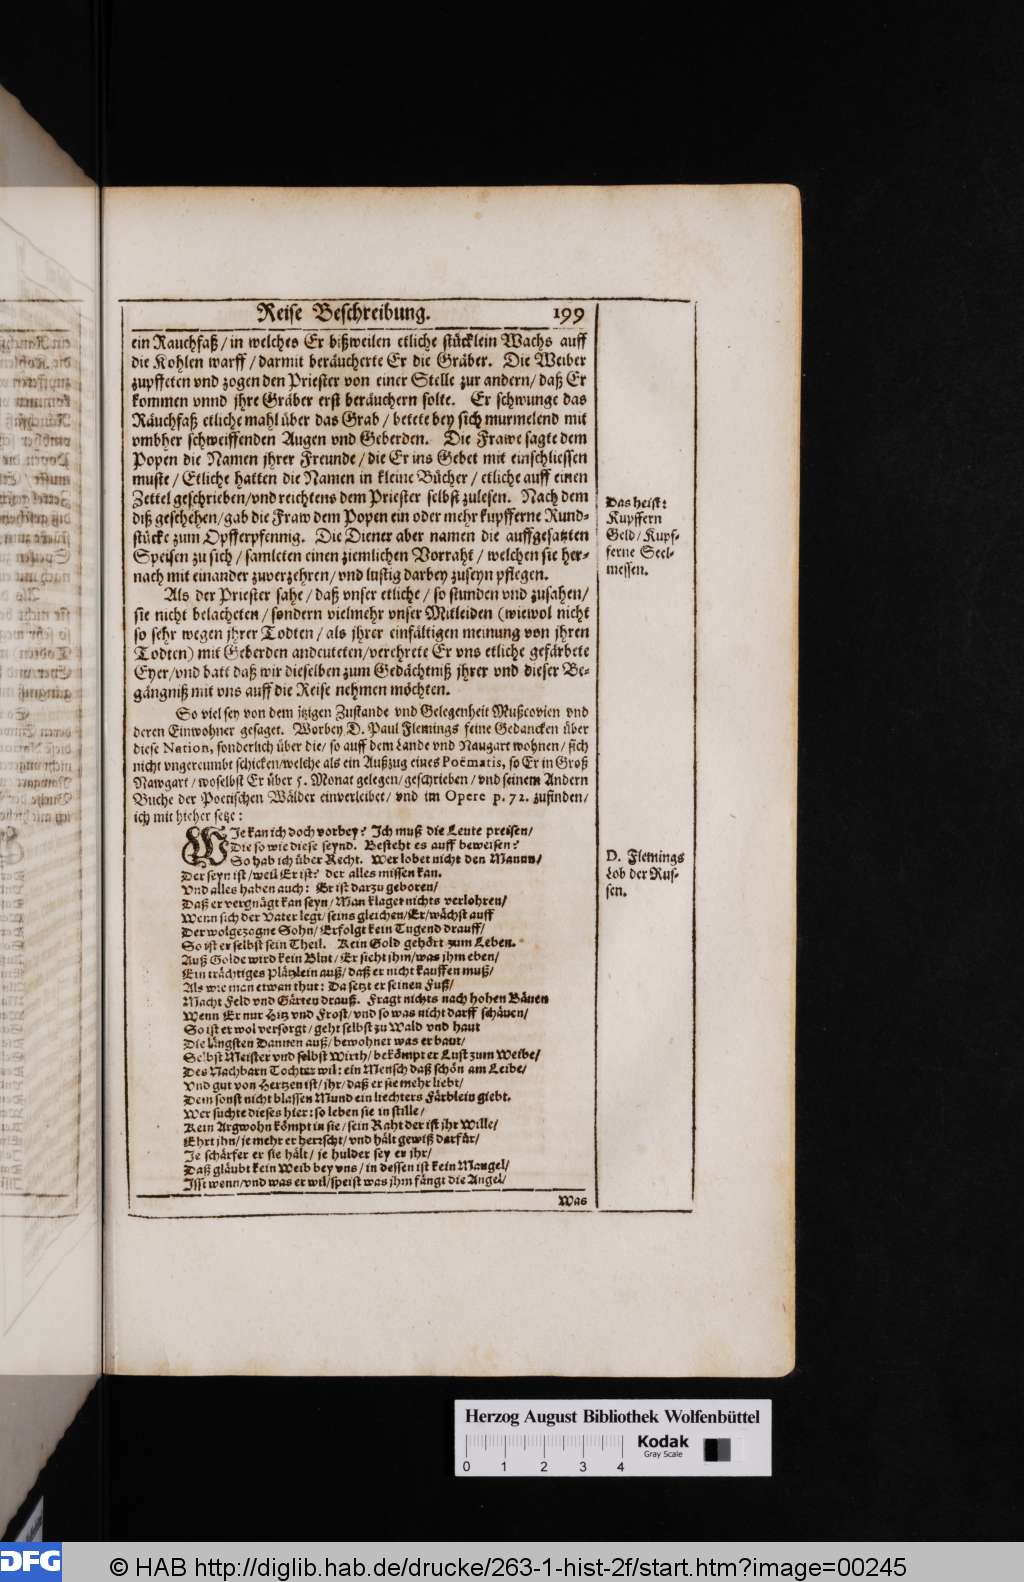 Reise Beschreibung. 199
ein Rauchfaß / in welches Er bißweilen etliche stücklein Wachs auff
die Kohlen warff / darmit beräucherte Er die Gräber. Die Weiber
zupffeten vnd zogen den Priester von einer Stelle zur andern / daß Er
kommen vnnd jhre Gräber erst beräuchern solte. Er schwunge das
Räuchfaß etliche mahl über das Grab / betete bey sich murmelend mit
vmbher schweiffenden Augen vnd Geberden. Die Frawe sagte dem
Popen die Namen jhrer Freunde / die Er ins Gebet mit einschliessen
muste / Etliche hatten die Namen in kleine Bücher / etliche auff einen
Zettel geschrieben / vnd reichtens dem Priester selbst zulesen. Nach dem
diß geschehen / gab die Fraw dem Popen ein oder mehr kupfferne Rund-
stücke zum Opfferpfennig. Die Diener aber namen die auffgesatzten
Speisen zu sich / samleten einen ziemlichen Vorraht / welchen sie her-
nach mit einander zuverzehren / vnd lustig darbey zuseyn pflegen.
Das heist:
Kupffern
Geld / Kupf-
ferne Seel-
messen.
Als der Priester sahe / daß vnser etliche / so stunden vnd zusahen /
sie nicht belacheten / sondern vielmehr vnser Mitleiden (wiewol nicht
so sehr wegen jhrer Todten / als jhrer einfältigen meinung von jhren
Todten) mit Geberden andeuteten / verehrete Er vns etliche gefärbete
Eyer / vnd batt daß wir dieselben zum Gedächtniß jhrer vnd dieser Be-
gängniß mit vns auff die Reise nehmen möchten.
So viel sey von dem jtzigen Zustande vnd Gelegenheit Mußcovien vnd
deren Einwohner gesaget. Worbey D. Paul Flemings seine Gedancken über
diese Nation, sonderlich über die / so auff dem Lande vnd Naugart wohnen / sich
nicht vngereumbt schicken / welche als ein Außzug eines Poëmatis, so Er in Groß
Nawgart / woselbst Er über 5. Monat gelegen / geschrieben / vnd seinem Andern
Buche der Poetischen Wälder einverleibet / vnd im Opere p. 72. zufinden /
ich mit hieher setze:
D. Flemings
Lob der Rus-
sen.
WIe kan ich doch vorbey? Ich muß die Leute preisen /
Die so wie diese seynd. Besteht es auff beweisen?
So hab ich über Recht. Wer lobet nicht den Mann /
Der seyn ist / weil Er ist? der alles missen kan.
Vnd alles haben auch: Er ist darzu geboren /
Daß er vergnägt kan seyn / Man klaget nichts verlohren /
Wenn sich der Vater legt / seins gleichen / Er / wächst auff
Der wolgezogne Sohn / Erfolgt kein Tugend drauff /
So ist er selbst sein Theil. Kein Gold gehört zum Leben.
Auß Golde wird kein Blut / Er sieht jhm / was jhm eben /
Ein trächtiges Plätzlein auß / daß er nicht kauffen muß /
Als wie man etwan thut: Da setzt er seinen Fuß /
Macht Feld vnd Gärten drauß. Fragt nichts nach hohen Bäuen
Wenn Er nur Hitz vnd Frost / vnd so was nicht darff schäuen /
So ist er wol versorgt / geht selbst zu Wald vnd haut
Die längsten Dannen auß / bewohner was er baut /
Selbst Meister vnd selbst Wirth / bekömpt er Lust zum Weibe /
Des Nachbarn Tochter wil: ein Mensch daß schön am Leibe /
Vnd gut von Hertzen ist / jhr / daß er sie mehr liebt /
Dem sonst nicht blassen Mund ein liechters Färblein giebt.
Wer suchte dieses hier: so leben sie in stille /
Kein Argwohn kömpt in sie / sein Raht der ist jhr Wille /
Ehrt jhn / je mehr er herrscht / vnd hält gewiß darfür /
Je schärfer er sie hält / je hulder sey er jhr /
Daß gläubt kein Weib bey vns / in dessen ist kein Mangel /
Isst wenn / vnd was er wil / speist was jhm fängt die Angel /
Was
Herzog August Bibliothek Wolfenbüttel
Kodak
Gray Scale
0 1 2 3 4
DFG © HAB http://diglib.hab.de/drucke/263-1-hist-2f/start.htm?image=00245